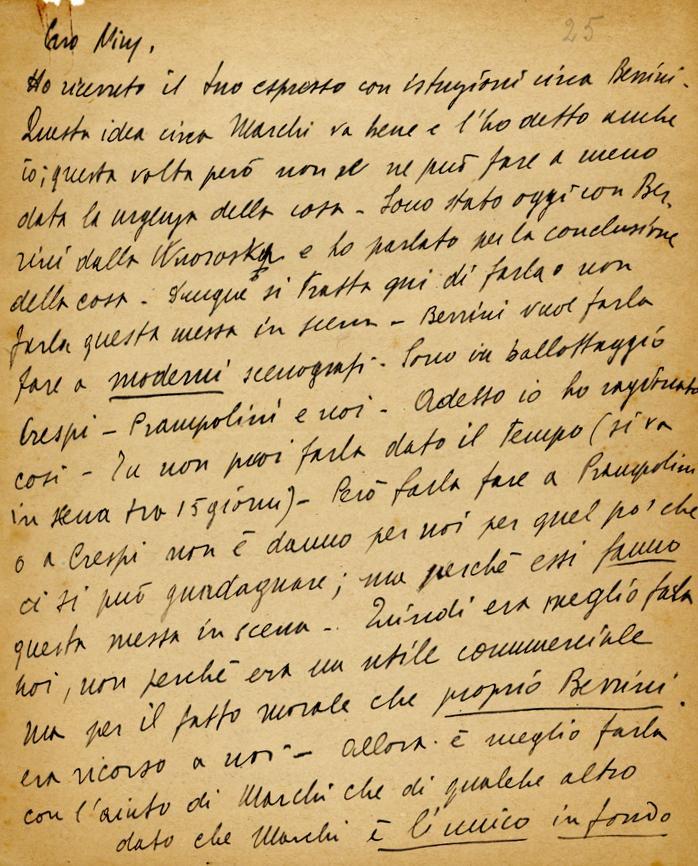 25
Caro Miny,
Ho ricevuto il tuo espresso con istruzioni circa Berrini.
Questa idea circa Marchi va bene e l'ho detto anche
io; questa volta però non se ne può fare a meno
data la urgenza della cosa - Sono stato oggi con Ber-
rini dalla e ho parlato per la conclusione
della cosa - Dunque si tratta qui di farla o non
farla questa messa in scena - Berrini vuol farla
fare a moderni scenografi - Sono in ballottaggio
Crespi - Prampolini e noi - Adesso io ho ragionato
così - Tu non puoi farla dato il tempo (si va
in scena tra 15 giorni) - Però farla fare a Prampolini
o a Crespi non è danno per noi per quel po' che
ci si può guadagnare; ma perché essi fanno
questa messa in scena - Quindi era meglio farla
noi, non perché era un utile commerciale
ma per il fatto morale che proprio Berrini
era ricorso a noi - Allora è meglio farla
con l'aiuto di Marchi che di qualche altro
dato che Marchi è l'unico in fondo